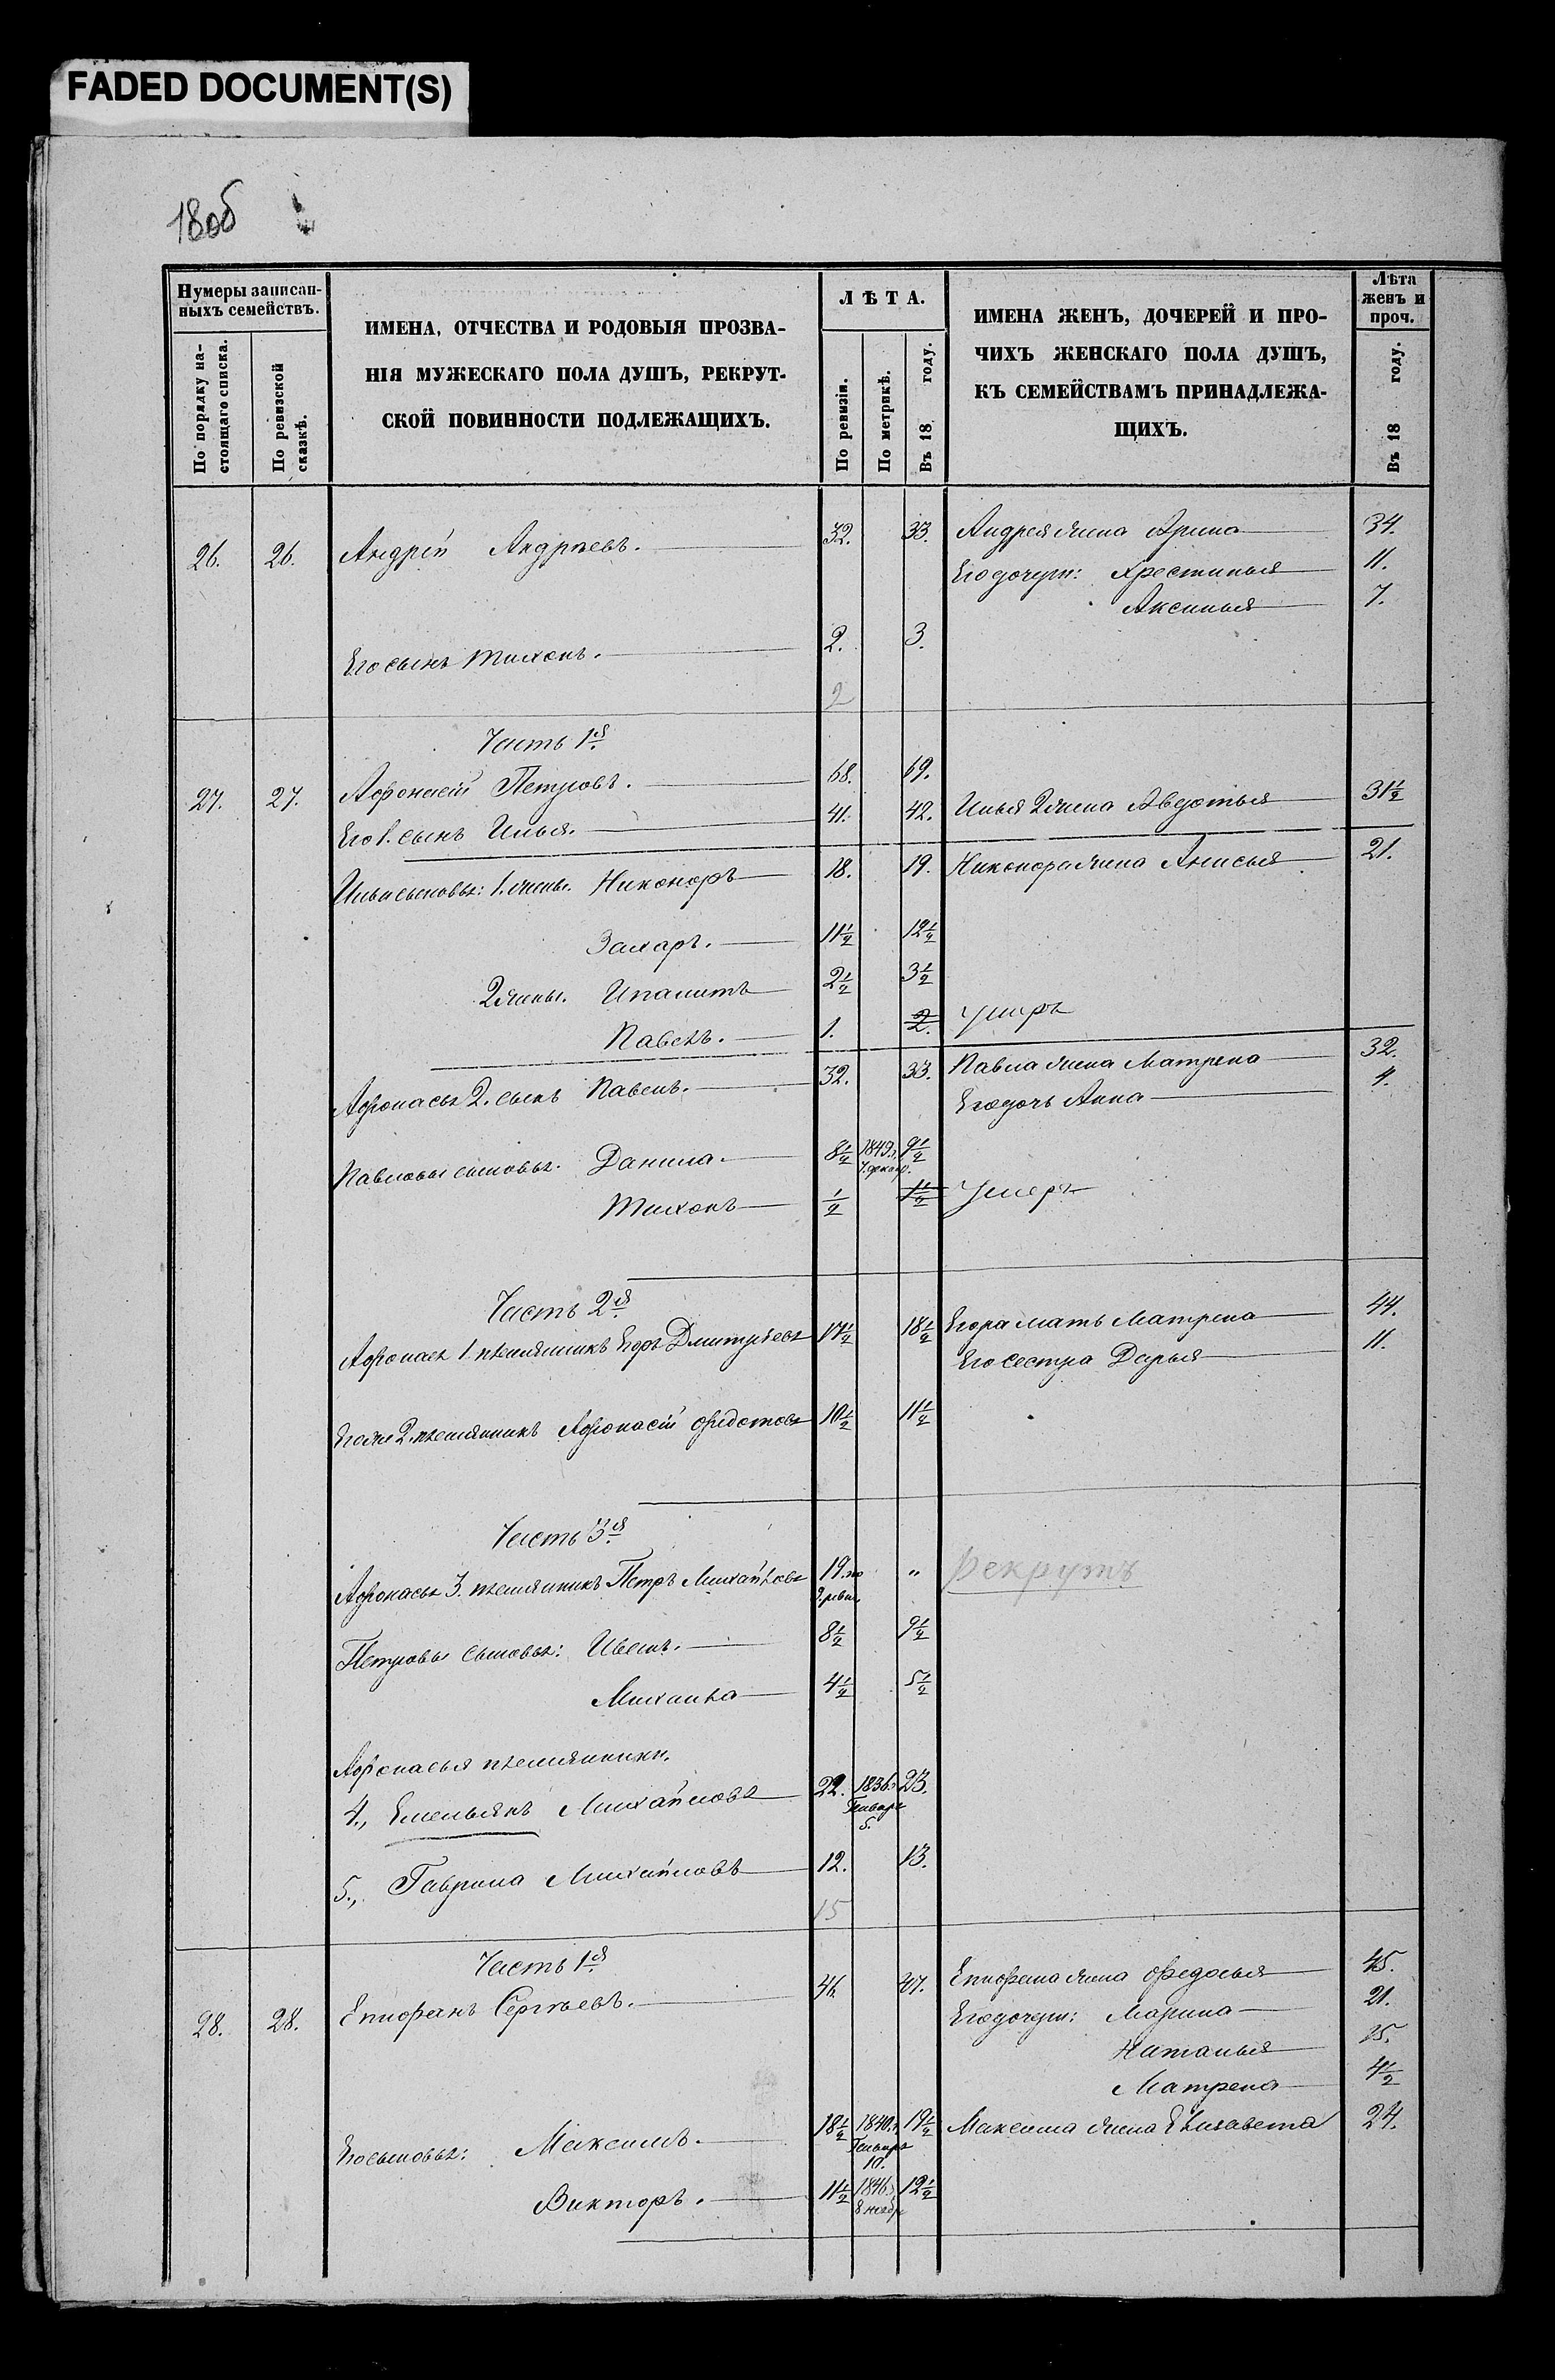 FADED DOCUMENT(S)
18об
Нумеры записан-
ныхъ семействъ.
По порядку на-
стоящаго списка.
По ревизской
сказкѣ.
ИМЕНА, ОТЧЕСТВА И РОДОВЫЯ ПРОЗВА-
НІЯ МУЖЕСКАГО ПОЛА ДУШЪ, РЕКРУТ-
СКОЙ ПОВИННОСТИ ПОДЛЕЖАЩИХЪ.
ЛѢТА.
По ревизіи.
По метрикѣ.
Въ 18 году.
ИМЕНА ЖЕНЪ, ДОЧЕРЕЙ И ПРО-
ЧИХЪ ЖЕНСКАГО ПОЛА ДУШЪ,
КЪ СЕМЕЙСТВАМЪ ПРИНАДЛЕЖА-
ЩИХЪ.
Лѣта
женъ и
проч.
Въ 18 году.
26. 26. Андрей Андреевъ. 32. 33. Андрея жена Арина 34.
Его дочери: Христинья 11.
Аксинья 7.
Его сынъ Тихонъ. 2. 3.
2
Часть 1я
27. 27. Афонасій Петровъ. 68. 69.
Его 1. сынъ Илья. 41. 42. Ильи 2 жена Авдотья 31½
Ильи сыновья: 1. жены. Никоноръ 18. 19. Никонора жена Анисья 21.
Захаръ. 11½ 12½
2 жены. Ипалитъ 2½ 3½
Павелъ. 1. 2. умеръ
Афонасья 2. сынъ Павелъ. 32. 33. Павла жена Матрена 32.
Его дочь Анна 4.
Павловы сыновья. Данила. 8½ 1849 г. 9½
Тихонъ ½ 1½ умеръ
Часть 2я
Афонасья 1. племянникъ Егоръ Дмитріевъ 17½ 18½ Егора мать Матрена 44.
Его сестра Дарья 11.
Его же 2. племянникъ Афонасій Федотовъ 10½ 11½
Часть 3я
Афонасья 3. племянникъ Петръ Михайловъ 19. по „ Рекрутъ
9. ревиз.
Петровы сыновья: Иванъ. 8½ 9½
Михаила 4½ 5½
Афонасья племянники.
4., Емельянъ Михайловъ 22. 1836 г. 23.
Января
5.
5., Гаврила Михайловъ 12. 13.
15
Часть 1я
28. 28. Епифанъ Сергѣевъ. 46. 47. Епифана жена Федосья 45.
Его дочери: Марина 21.
Наталья 15.
Матрена 4½
Его сыновья: Максимъ. 18½ 1840 г. 19½ Максима жена Елизавета 24.
Января
10.
Викторъ. 11½ 1846 г. 12½
8 ноябр